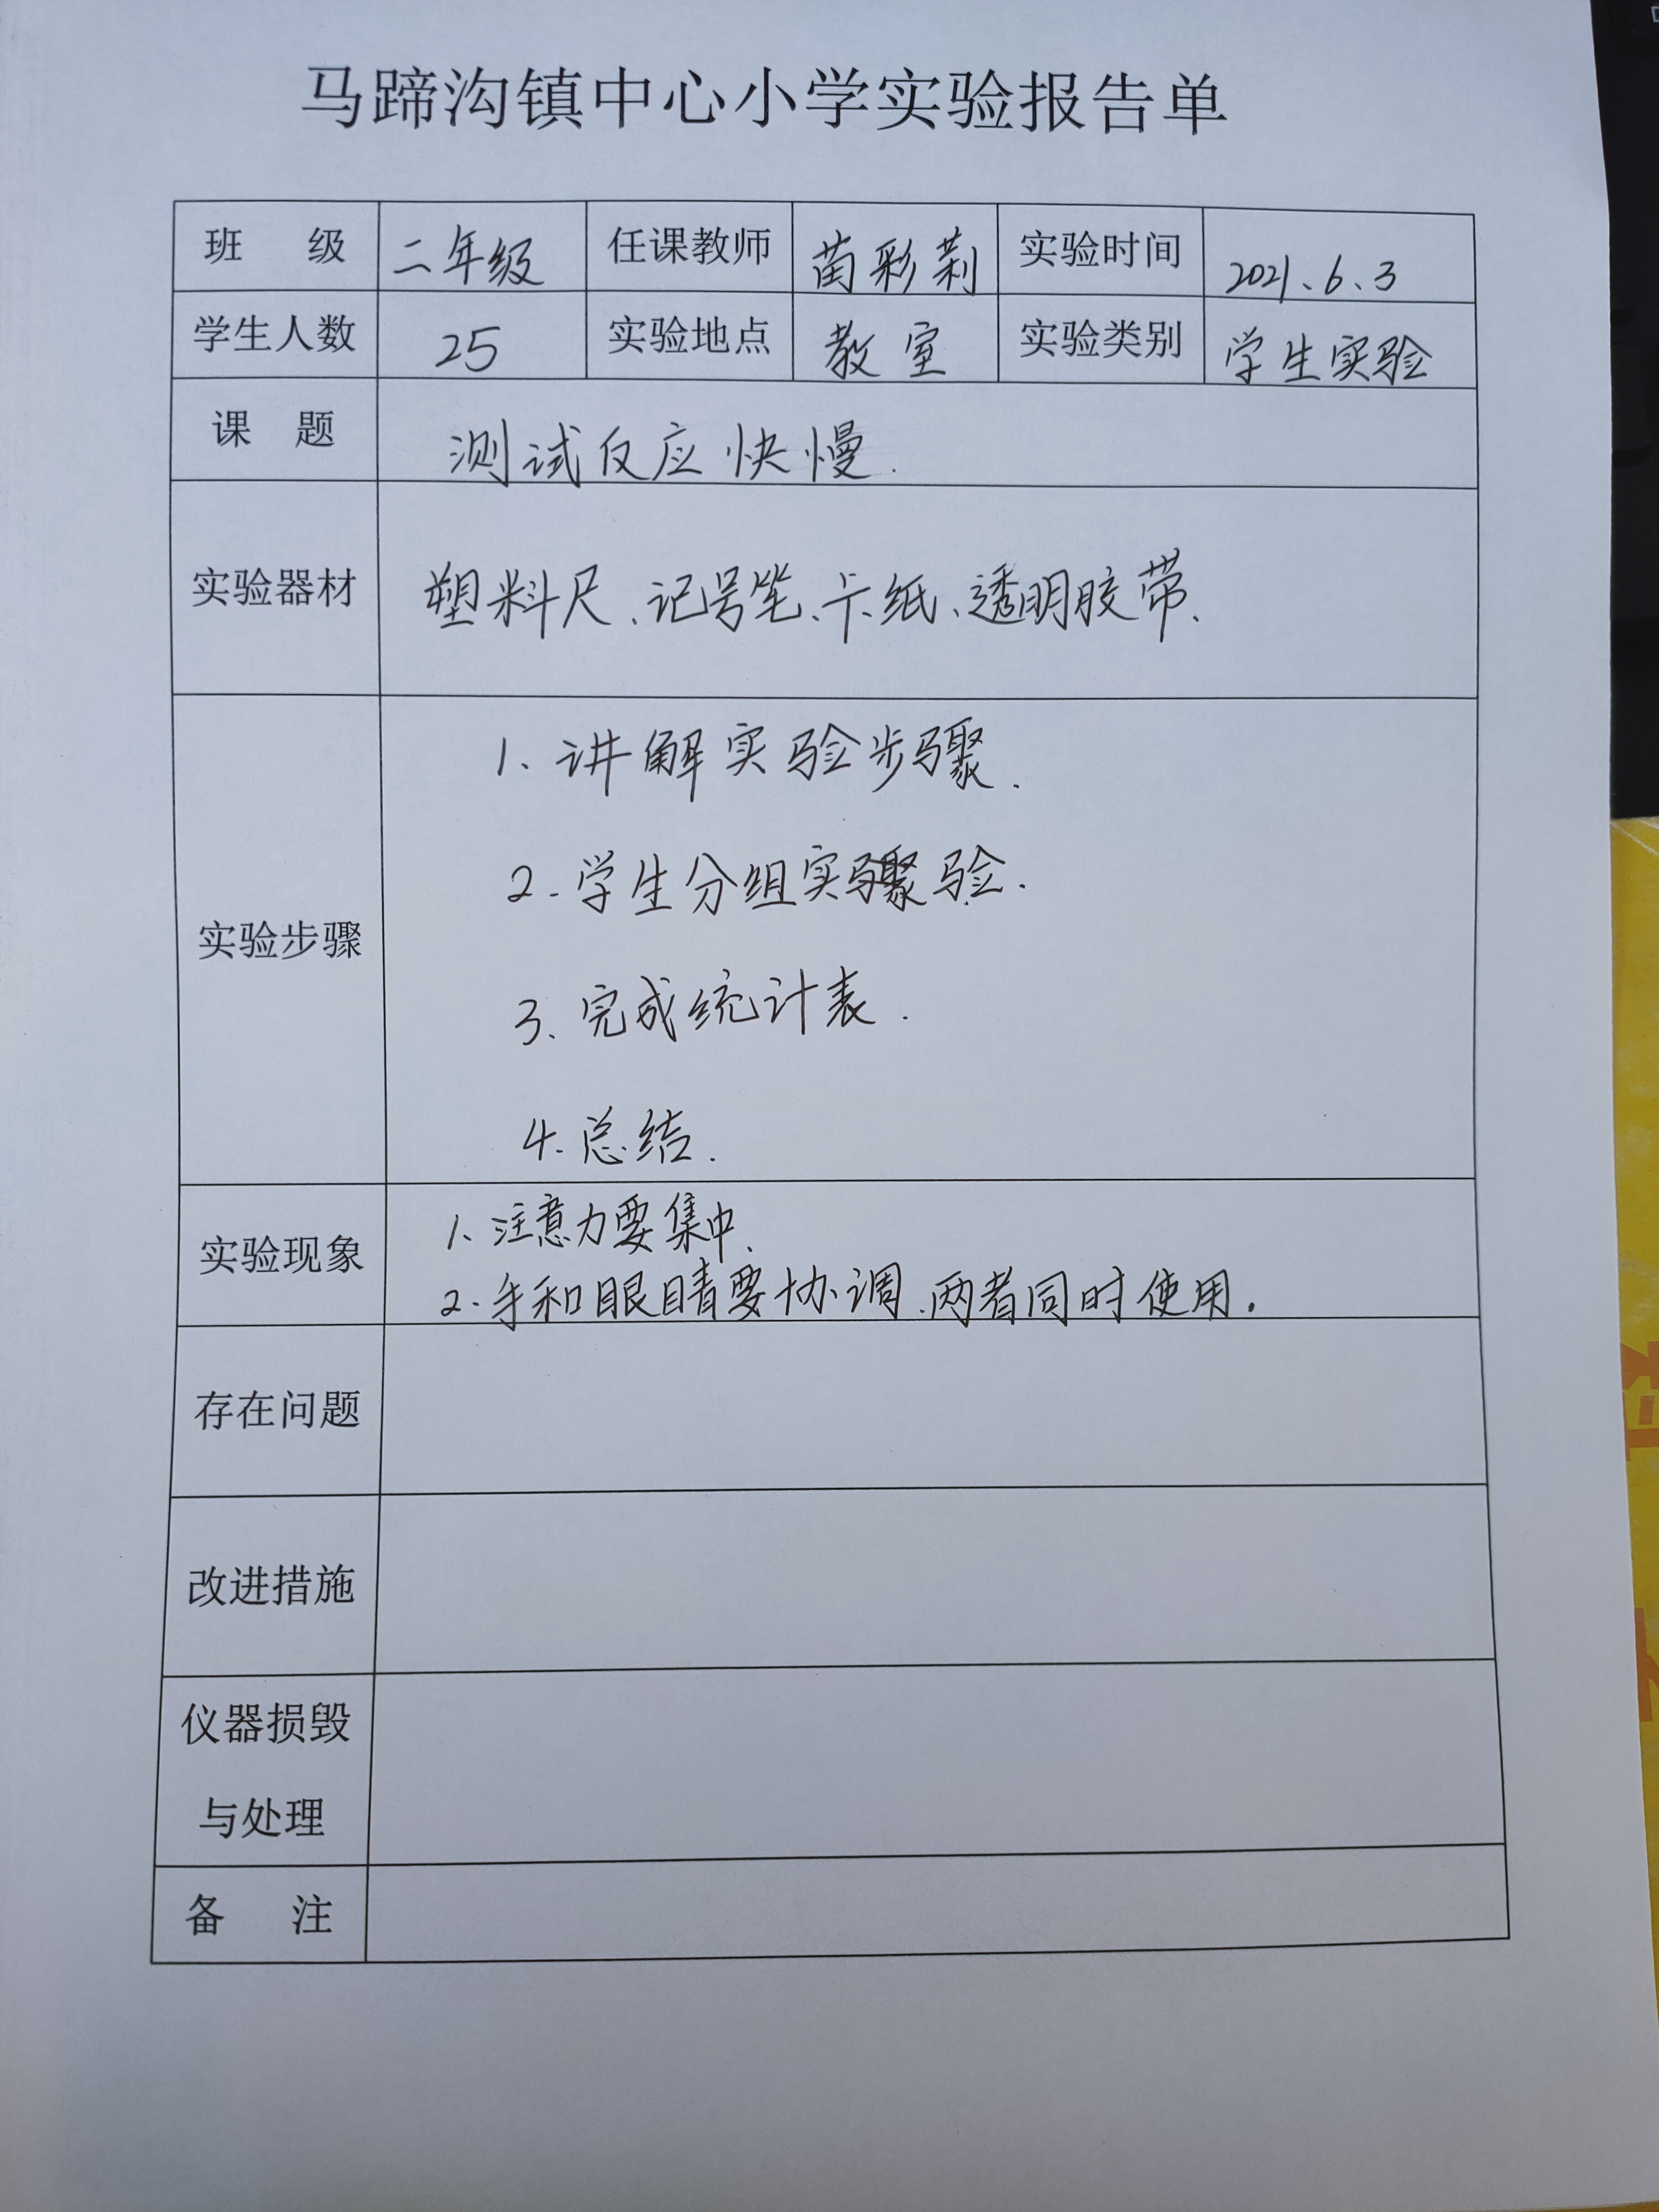 马蹄沟镇中心小学实验报告单
班 级 二年级 任课教师 苗彩莉 实验时间 2021、6、3
学生人数 25 实验地点 教室 实验类别 学生实验
课 题 测试反应快慢.
实验器材 塑料尺、记号笔、卡纸、透明胶带、
实验步骤
1、讲解实验步骤.
2.学生分组实骤验.
3、完成统计表.
4.总结.
实验现象
1、注意力要集中、
2.手和眼睛要协调、两者同时使用.
存在问题
改进措施
仪器损毁
与处理
备 注